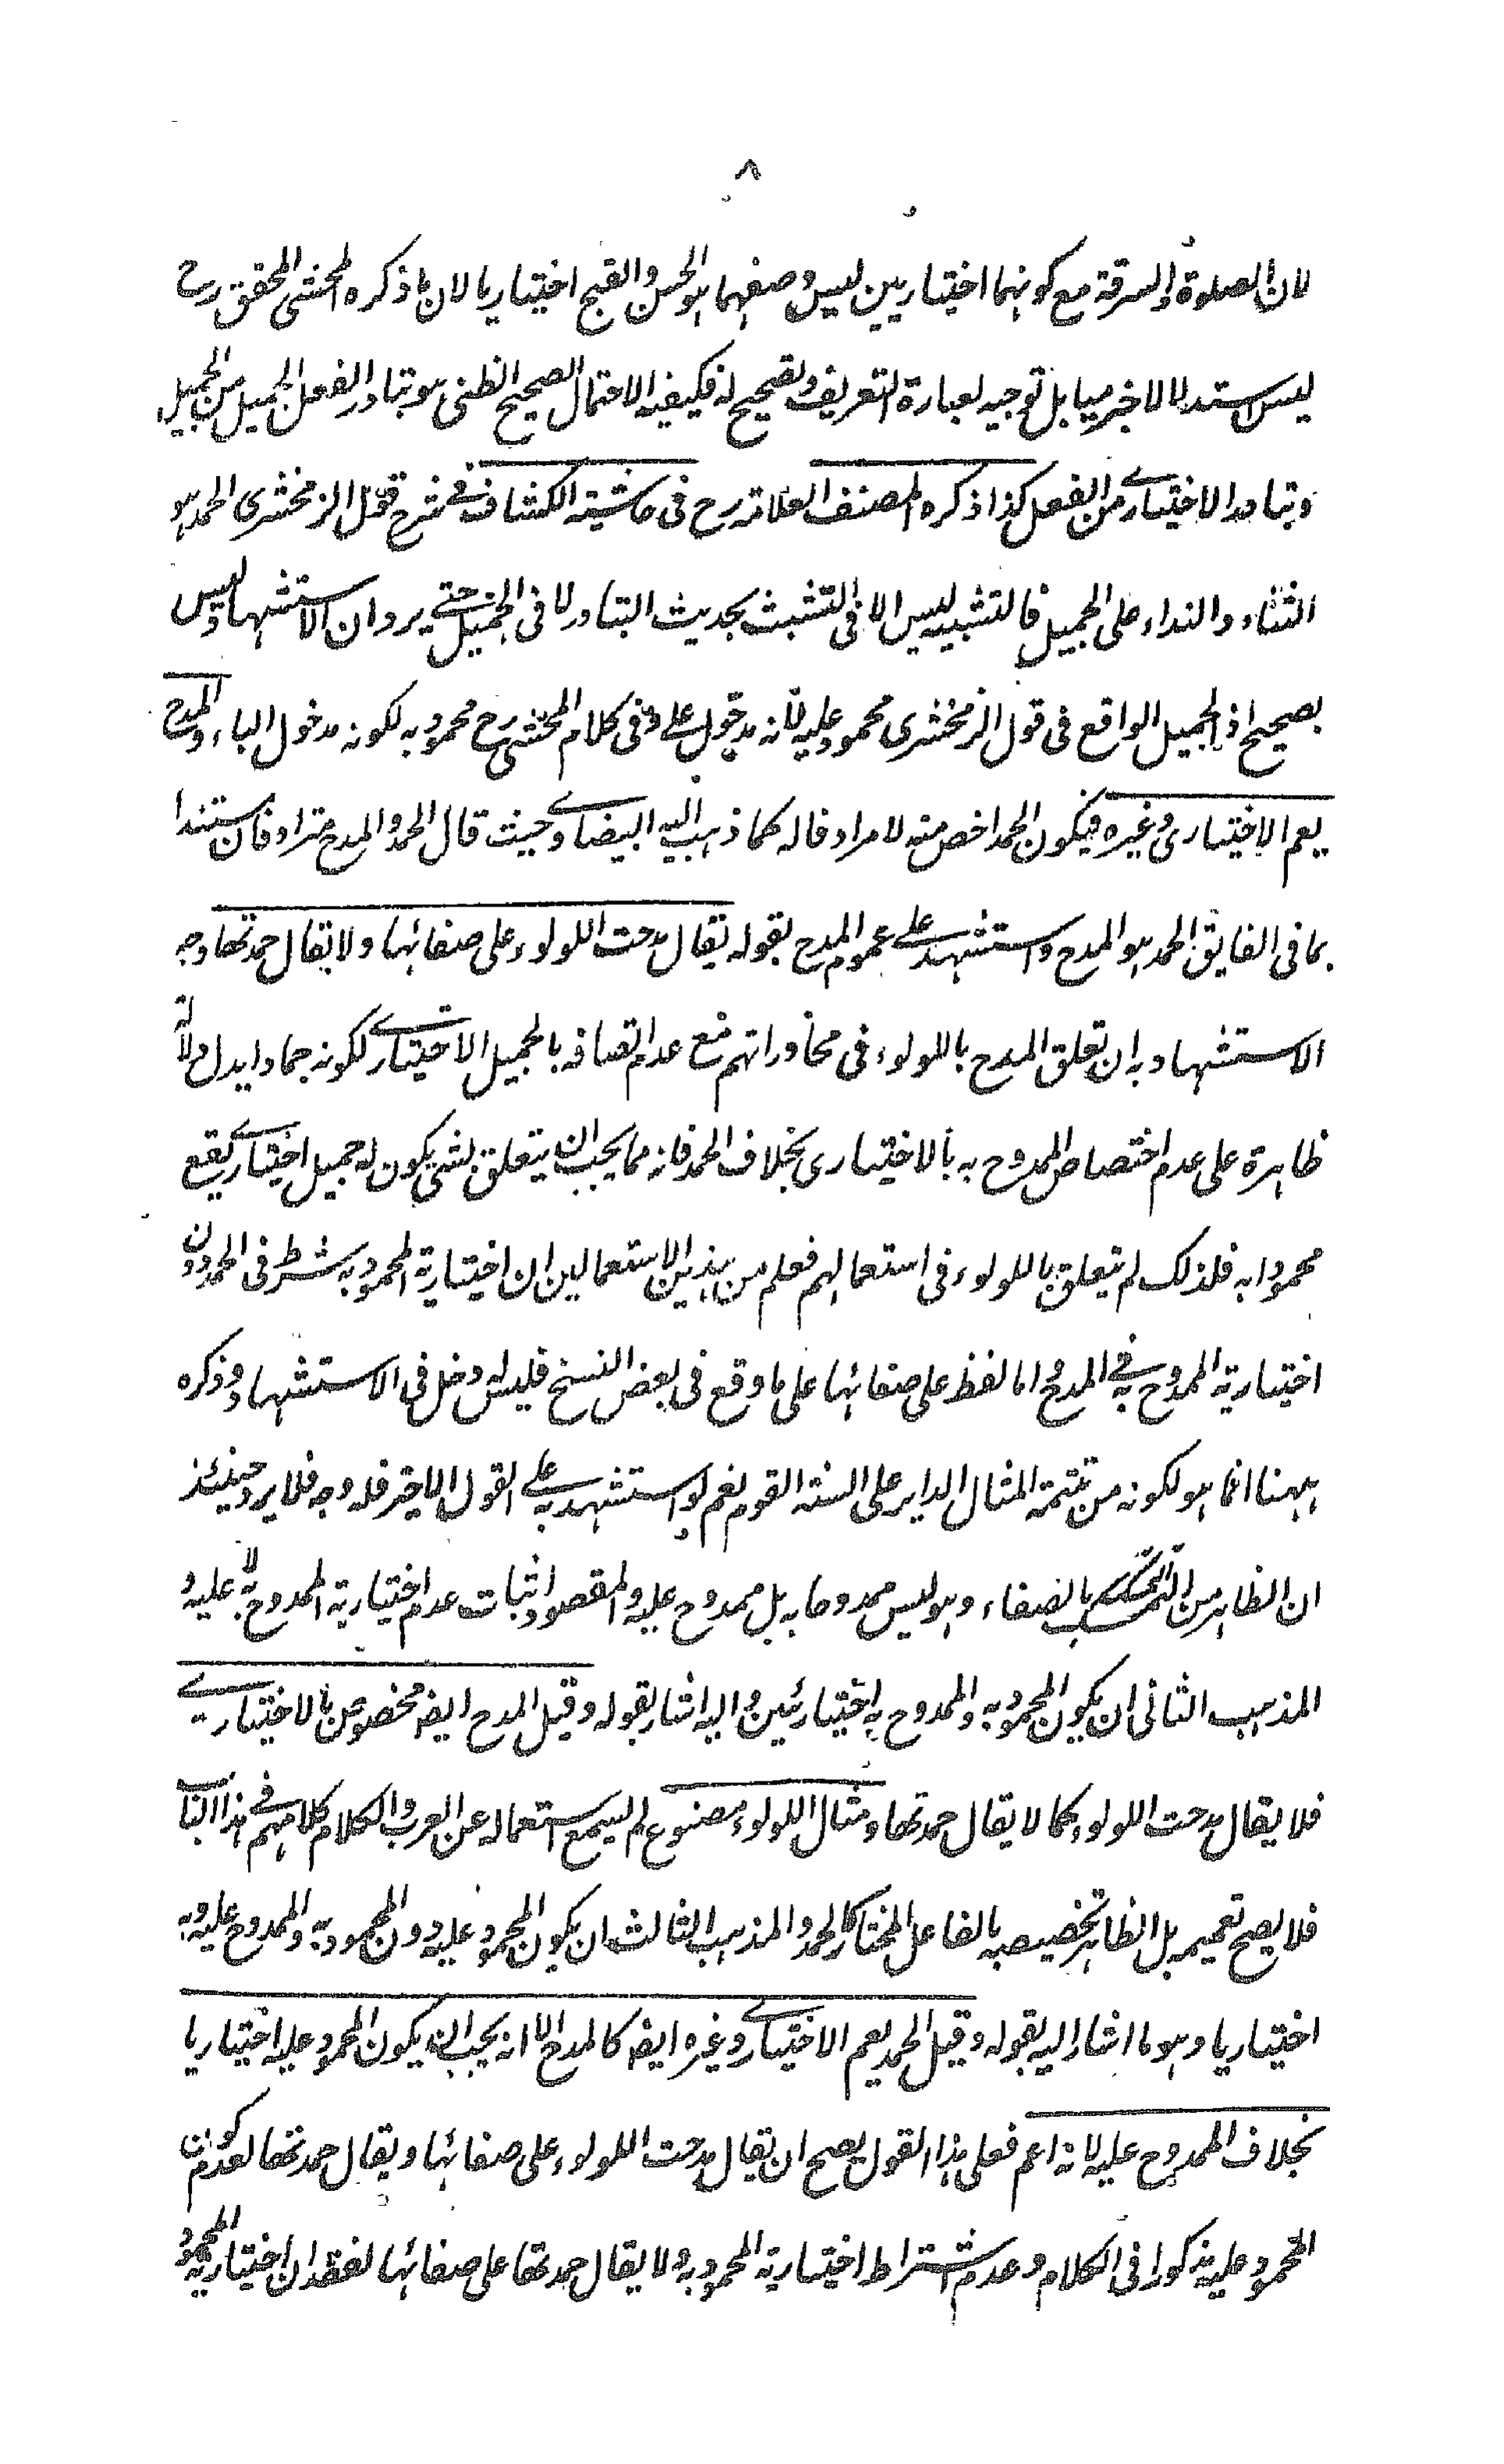 ٨
لان الصلوة والسرقة مع كونهما اختياريين ليس وصفهما هو الحسن والقبح اختياريا لان ما ذكره المحشى المحقق رح
ليس استدلالا لاخير ميا بل توجيه لعبارة التعريف وتصحيح له فكيفيه الاحتمال الصحيح الظنى هو تبادر الفعل الجميل من الجميل
وتبادر الاختيارے من الفعل كذا ذكره المصنف العلامة رح فى حاشية الكشاف فے شرح قول الزمخشرى الحمد هو
الثناء والنداء على الجميل فالتشبيه ليس الا فى التشبث بحديث التبادر لا فى الجميل حتے يرد ان الاستشهاد ليس
بصحيح اذ الجميل الواقع فى قول الزمخشرى محمود عليه لانه مدخول علے وفى كلام المحشى رح محمود به لكونه مدخول الباء والمدح
يعم الاختيارى وغيره فيكون الحمد اخص منه لا مرادفا له كما ذهب اليه البيضاوے حيث قال الحمد والمدح مترادفان مستندا
بما فى الفايق الحمد هو المدح واستشهد علے عموم المدح بقوله يقال مدحت اللولوء على صفائها ولا يقال حمدتها وجه
الاستشهاد به ان تعلق المدح باللولوء فى محاوراتهم مع عدم اتصافه بالجميل الاختيارے لكونه جمادا يدل دلالة
ظاهرة على عدم اختصاص الممدوح به بالاختيارى بخلاف الحمد فانه مما يجب ان يتعلق بشى يكون له جميل اختيارے يقع
محمودا به فلذلك لم يتعلق باللولوء فى استعمالهم فعلم من هذين الاستعمالين ان اختيارية المحمود به شرط فى الحمد دون
اختيارية الممدوح فے المدح واما لفظ على صفائها على ما وقع فى بعض النسخ فليس له دخل فى الاستشهاد وذكره
ههنا انما هو لكونه من تتمة المثال الداير على السنة القوم نعم لو استشهد به علے القول الاخير فله وجه فلا يرد حينئذ
ان الظاهر من التمسك بالصفاء وهو ليس ممدوحا به بل ممدوح عليه والمقصود اثبات عدم اختيارية الممدوح به لا عليه و
المذهب الثانى ان يكون المحمود به والممدوح به اختياريين واليه اشار بقوله وقيل المدح ايضا مخصوص بالاختيارے
فلا يقال مدحت اللولوء كما لا يقال حمدتها ومثال اللولوء مصنوع لم يسمع استعماله عن العرب والكلام كلامهم فے هذا الباب
فلا يصح تعميمه بل الظاهر تخصيصه بالفاعل المختار كالحمد والمذهب الثالث ان يكون المحمود عليه دون المحمود به والممدوح عليه وبه
اختياريا وهو ما اشار اليه بقوله وقيل الحمد يعم الاختيارے وغيره ايضا كالمدح الا انه يجب ان يكون المحمود عليه اختياريا
بخلاف الممدوح عليه لانه اعم فعلى هذا القول يصح ان يقال مدحت اللولوء على صفائها ويقال حمدتها لعدم كون
المحمود عليه مذكورا فى الكلام وعدم اشتراط اختيارية المحمود به ولا يقال حمدتها على صفائها لفقدان اختيارية المحمود